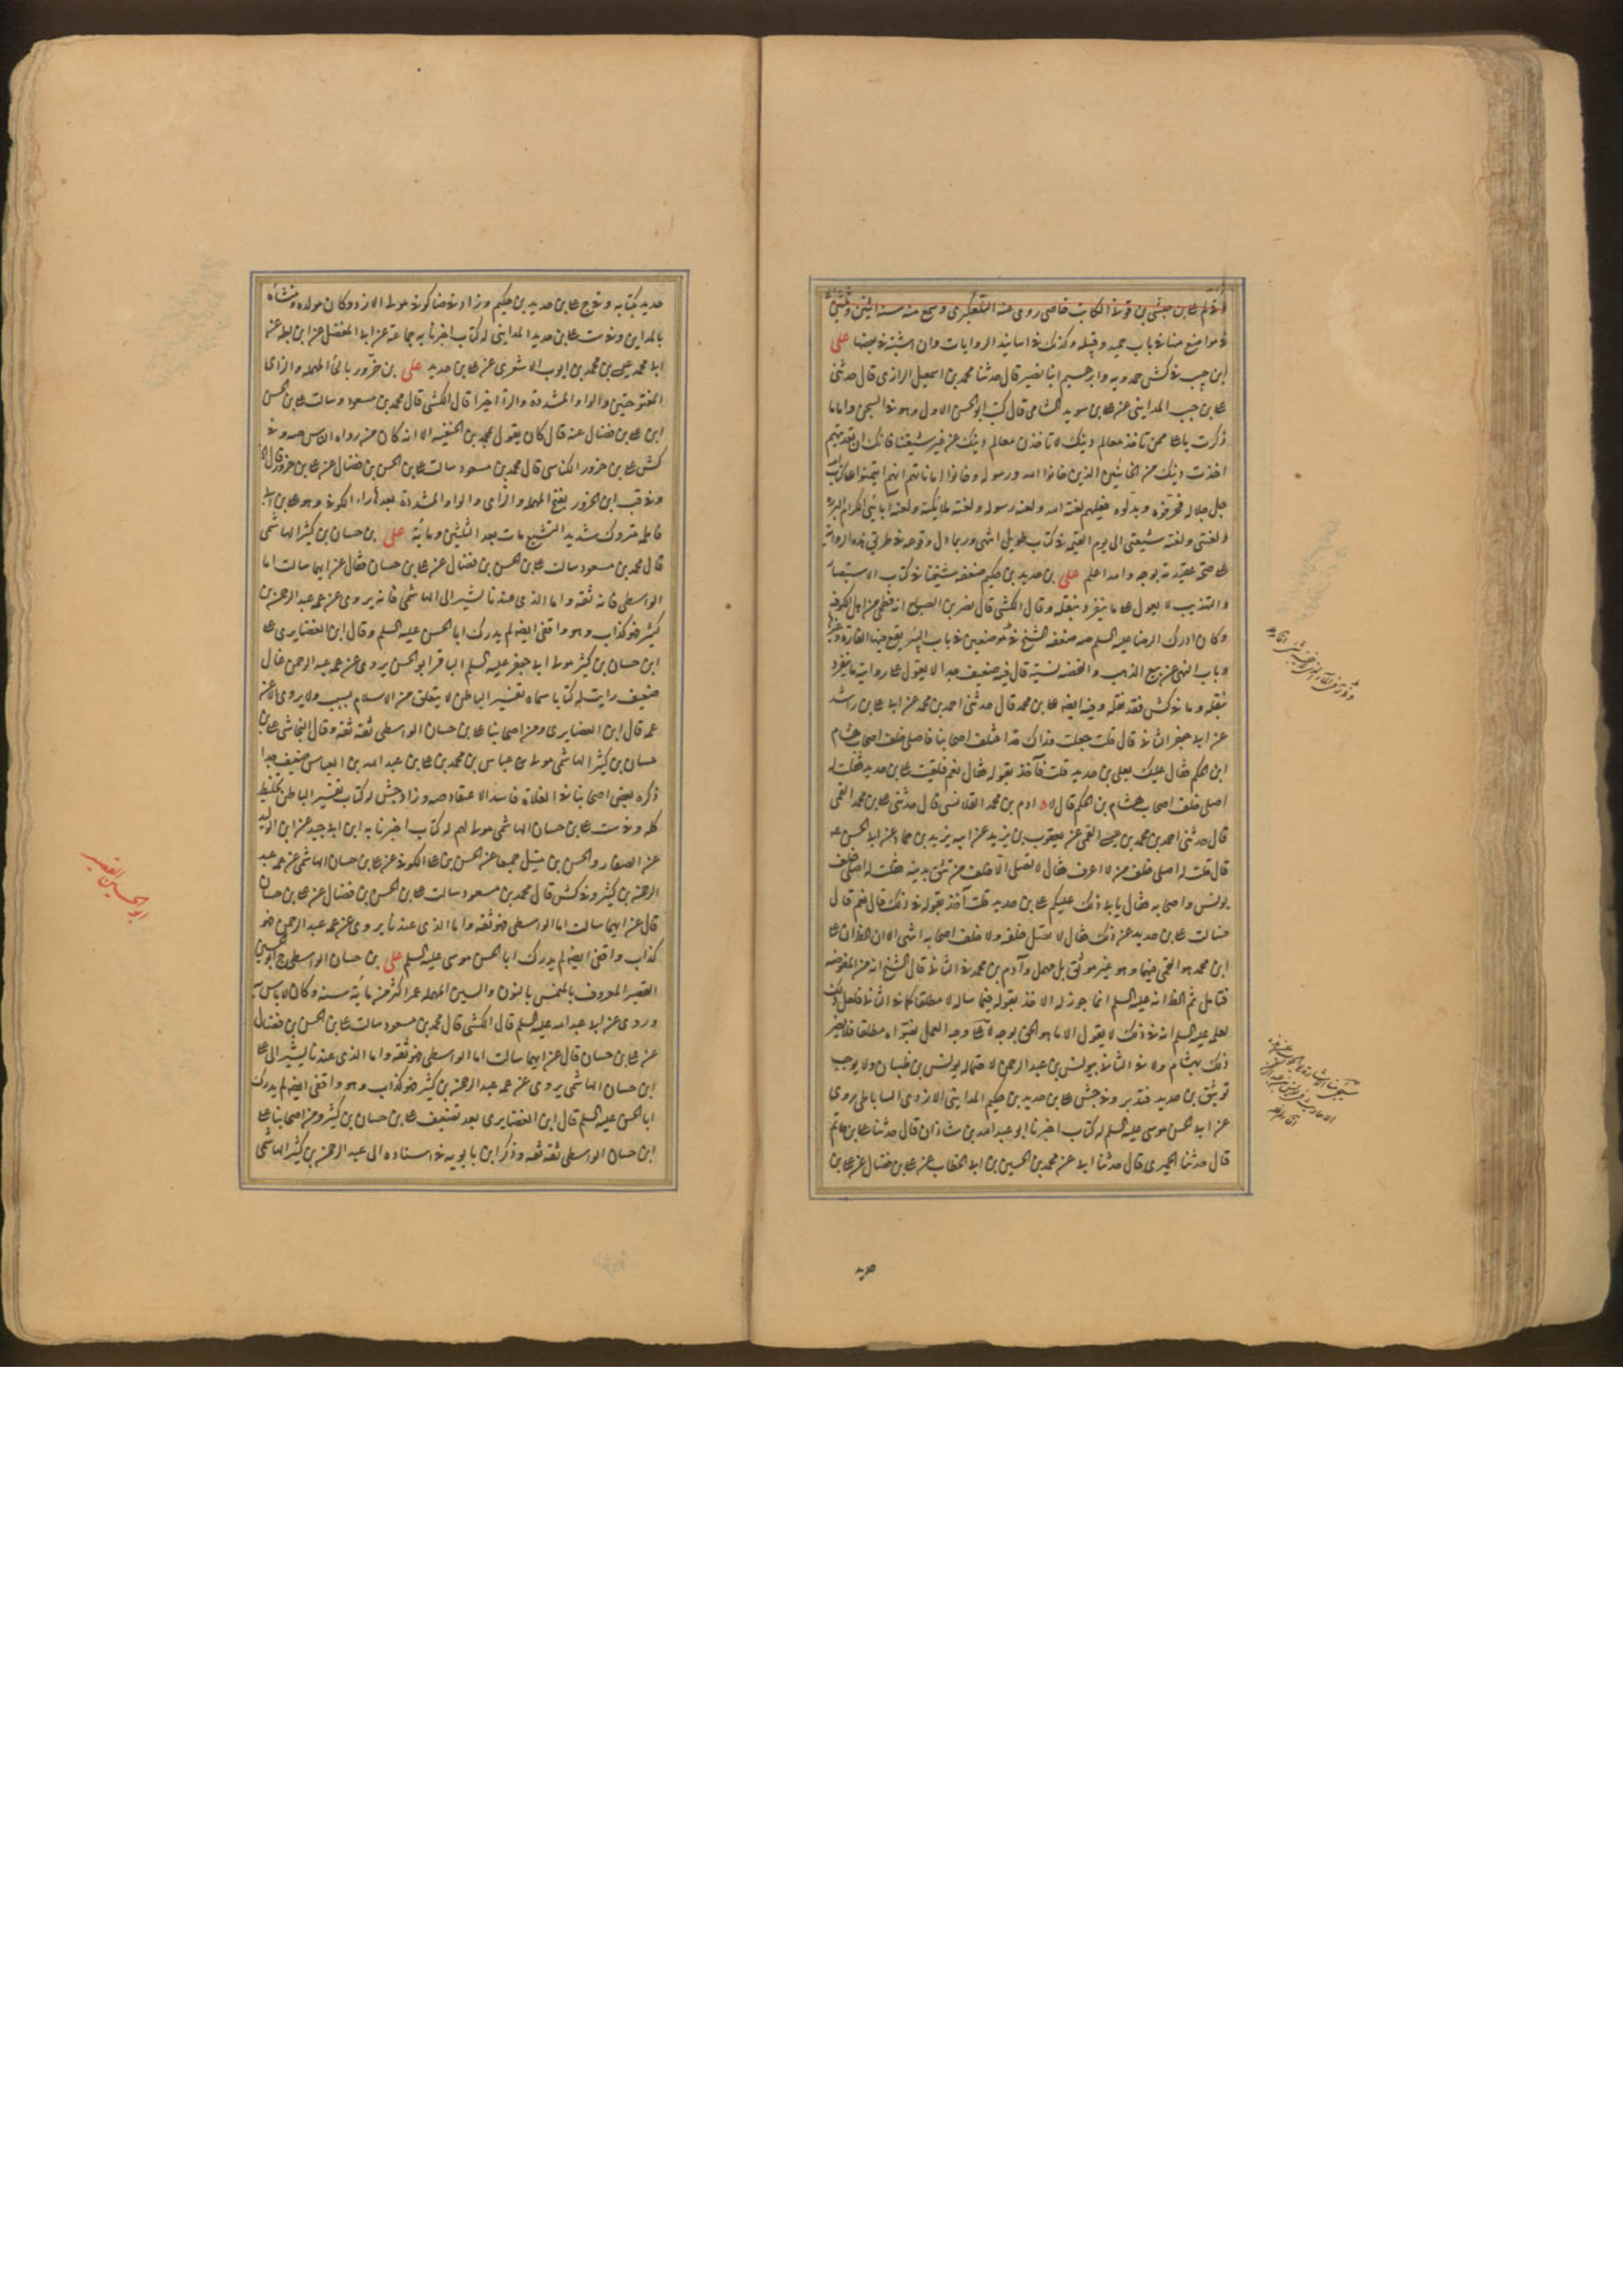 في مواضع منها في باب حميد وقبله وكذلك في اسانيد الروايات وان اشتبه في بعضها علي
ابن حبيب في كش حمدويه وابرهيم ابنا نصير قال حدثنا محمد بن اسمعيل الرازي قال حدثني
علي بن حبيب المدايني عن علي بن سويد الشامي قال كتب ابو الحسن الاول وهو في السجن واما ما
ذكرت يا علي ممن تاخذ معالم دينك لا تاخذن معالم دينك عن غير شيعتنا فانك ان تعديتهم
اخذت دينك من الخائنين الذين خانوا الله ورسوله وخانوا اماناتهم انهم ائتمنوا على كتاب الله
جل جلاله فحرفوه وبدلوه فعليهم لعنة الله ولعنة رسوله ولعنة ملائكته ولعنة ابائي الكرام البررة
ولعنتي ولعنة شيعتي الى يوم القيمة في كتاب طويل انتهى وربما
علي بن حديد بن حكيم ضعفه شيخنا في كتاب الاستبصار
والتهذيب لا يعول على ما ينفرد بنقله وقال الكشي قال نصر بن الصباح انه فطحي من اهل الكوفة
وكان ادرك الرضا عليه السلم صه ضعفه الشيخ في موضعين في باب البئر يقع فيها الفارة وغيرها
وباب النهي عن بيع الذهب والفضه نسيئة قال فيه ضعيف جدا لا يعول على رواية ما ينفرد
بنقله وما في كش فقد نقله وفيه ايضا علي بن محمد قال حدثني احمد بن محمد عن ابي علي بن راشد
عن ابي جعفر الثاني قال قلت جعلت فداك قد اختلف اصحابنا فاصلي خلف اصحاب هشام
ابن الحكم فقال عليك بعلي بن حديد قلت فآخذ بقوله فقال نعم فلقيت علي بن حديد فقلت له
اصلي خلف اصحاب هشام بن الحكم قال لا ادم بن محمد القلانسي قال حدثني علي بن محمد القمي
قال حدثني احمد بن محمد بن عيسى القمي عن يعقوب بن يزيد عن ابيه يزيد بن حماد عن ابي الحسن عه
قال قلت له اصلي خلف من لا اعرف فقال لا تصل الا خلف من تثق بدينه فقلت له اصلي خلف
يونس واصحابه فقال يابى ذلك عليكم علي بن حديد قلت آخذ بقوله في ذلك قال نعم قال
فسالت علي بن حديد عن ذلك فقال لا تصل خلفه ولا خلف اصحابه انتهى الا ان الظ ان علي
ابن محمد هو القمي فيهما وهو غير موثق بل مهمل وآدم بن محمد في الثاني قال الشيخ انه من المفوضه
فتامل ثم الظ انه عليه السلم انما جوز له الاخذ بقوله فيما ساله لا مطلقا كما في الثاني فلعل ذلك
لعلمه عليه السلم انه في ذلك لا يقول الا ما هو الحق
ذلك بهشام ولا في الثاني بيونس بن عبد الرحمن لاحتماله يونس بن ظبيان ولا يوجب
توثيق بن حديد فتدبر وفي جش علي بن حديد بن حكيم المدايني الازدي الساباطي روى
عن ابي الحسن موسى عليه السلم له كتاب اخبرنا ابو عبد الله بن شاذان قال حدثنا علي بن حاتم
قال حدثنا الحميري قال حدثنا ابي عن محمد بن الحسين بن ابي الخطاب عن علي بن فضال عن علي بن
حديد
حديد بكتابه وفي ج علي بن حديد بن حكيم وزاد في ضا كوفي مولى الازد وكان مولده ومنشأه
بالمداين وفي ست علي بن حديد المدايني له كتاب اخبرنا به جماعة عن ابي المفضل عن ابن بطه عن
ابي محمد عيسى بن محمد بن ايوب الاشعري عن علي بن حديد علي بن حزور بالحاء المهمله والزاي
المفتوحتين والواو المشددة والراء اخيرا قال الكشي قال محمد بن مسعود وسالت علي بن الحسن
ابن علي بن فضال عنه قال كان يقول بمحمد بن الحنفيه الا انه كان من رواه الناس صه وفي
كش علي بن حزور الكناسي قال محمد بن مسعود سالت علي بن الحسن بن فضال عن علي بن حزور قال
وفي قب ابن الحزور بفتح المهمله والزاي والواو المشددة بعدها راء الكوفي وهو علي بن ابي
فاطمه متروك شديد التشيع مات بعد الثلثين ومائة علي بن حسان بن كثير الهاشمي
قال محمد بن مسعود سالت علي بن الحسن بن فضال عن علي بن حسان فقال عن ايهما سالت اما
الواسطي فانه ثقه واما الذي عندنا يشير الى الهاشمي فانه يروي عن عمه عبد الرحمن بن
كثير فهو كذاب وهو واقفي ايضا لم يدرك ابا الحسن عليه السلم وقال ابن الغضايري علي
ابن حسان بن كثير مولى ابي جعفر عليه السلم الباقر ابو الحسن يروي عن عمه عبد الرحمن غال
ضعيف رايت له كتابا سماه تفسير الباطن لا يتعلق من الاسلام بسبب ولا يروي الا عن
عمه قال ابن الغضايري ومن اصحابنا علي بن حسان الواسطي ثقه ثقه وقال النجاشي علي بن
حسان بن كثير الهاشمي مولى عباس بن محمد بن علي بن عبد الله بن العباس ضعيف جدا
ذكره بعض اصحابنا في الغلاة فاسد الاعتقاد صه وزاد جش له كتاب تفسير الباطن تخليط
كله وفي ست علي بن حسان الهاشمي مولى لهم له كتاب اخبرنا به ابن ابي جيد عن ابن الوليد
عن الصفار والحسن بن متيل جميعا عن الحسن بن علي الكوفي عن علي بن حسان الهاشمي عن عمه عبد
الرحمن بن كثير وفي كش قال محمد بن مسعود سالت علي بن الحسن بن فضال عن علي بن حسان
قال عن ايهما سالت اما الواسطي فهو ثقه واما الذي عندنا يروي عن عمه عبد الرحمن فهو
كذاب واقفي ايضا لم يدرك ابا الحسن موسى عليه السلم علي بن حسان الواسطي ابو الحسين
القصير المعروف بالمنمس بالنون والسين المهمله عمر اكثر من مائة سنه وكان لا باس به
وروى عن ابي عبد الله عليه السلم قال الكشي قال محمد بن مسعود سالت علي بن الحسن بن فضال
عن علي بن حسان قال عن ايهما سالت اما الواسطي فهو ثقه واما الذي عندنا يشير الى علي
ابن حسان الهاشمي يروي عن عمه عبد الرحمن بن كثير فهو كذاب وهو واقفي ايضا لم يدرك
ابا الحسن عليه السلم قال ابن الغضايري بعد تضعيف علي بن حسان بن كثير ومن اصحابنا علي
ابن حسان الواسطي ثقه ثقه وذكر ابن بابويه في اسناده الى عبد الرحمن بن كثير الهاشمي
ابو الحسين القصير